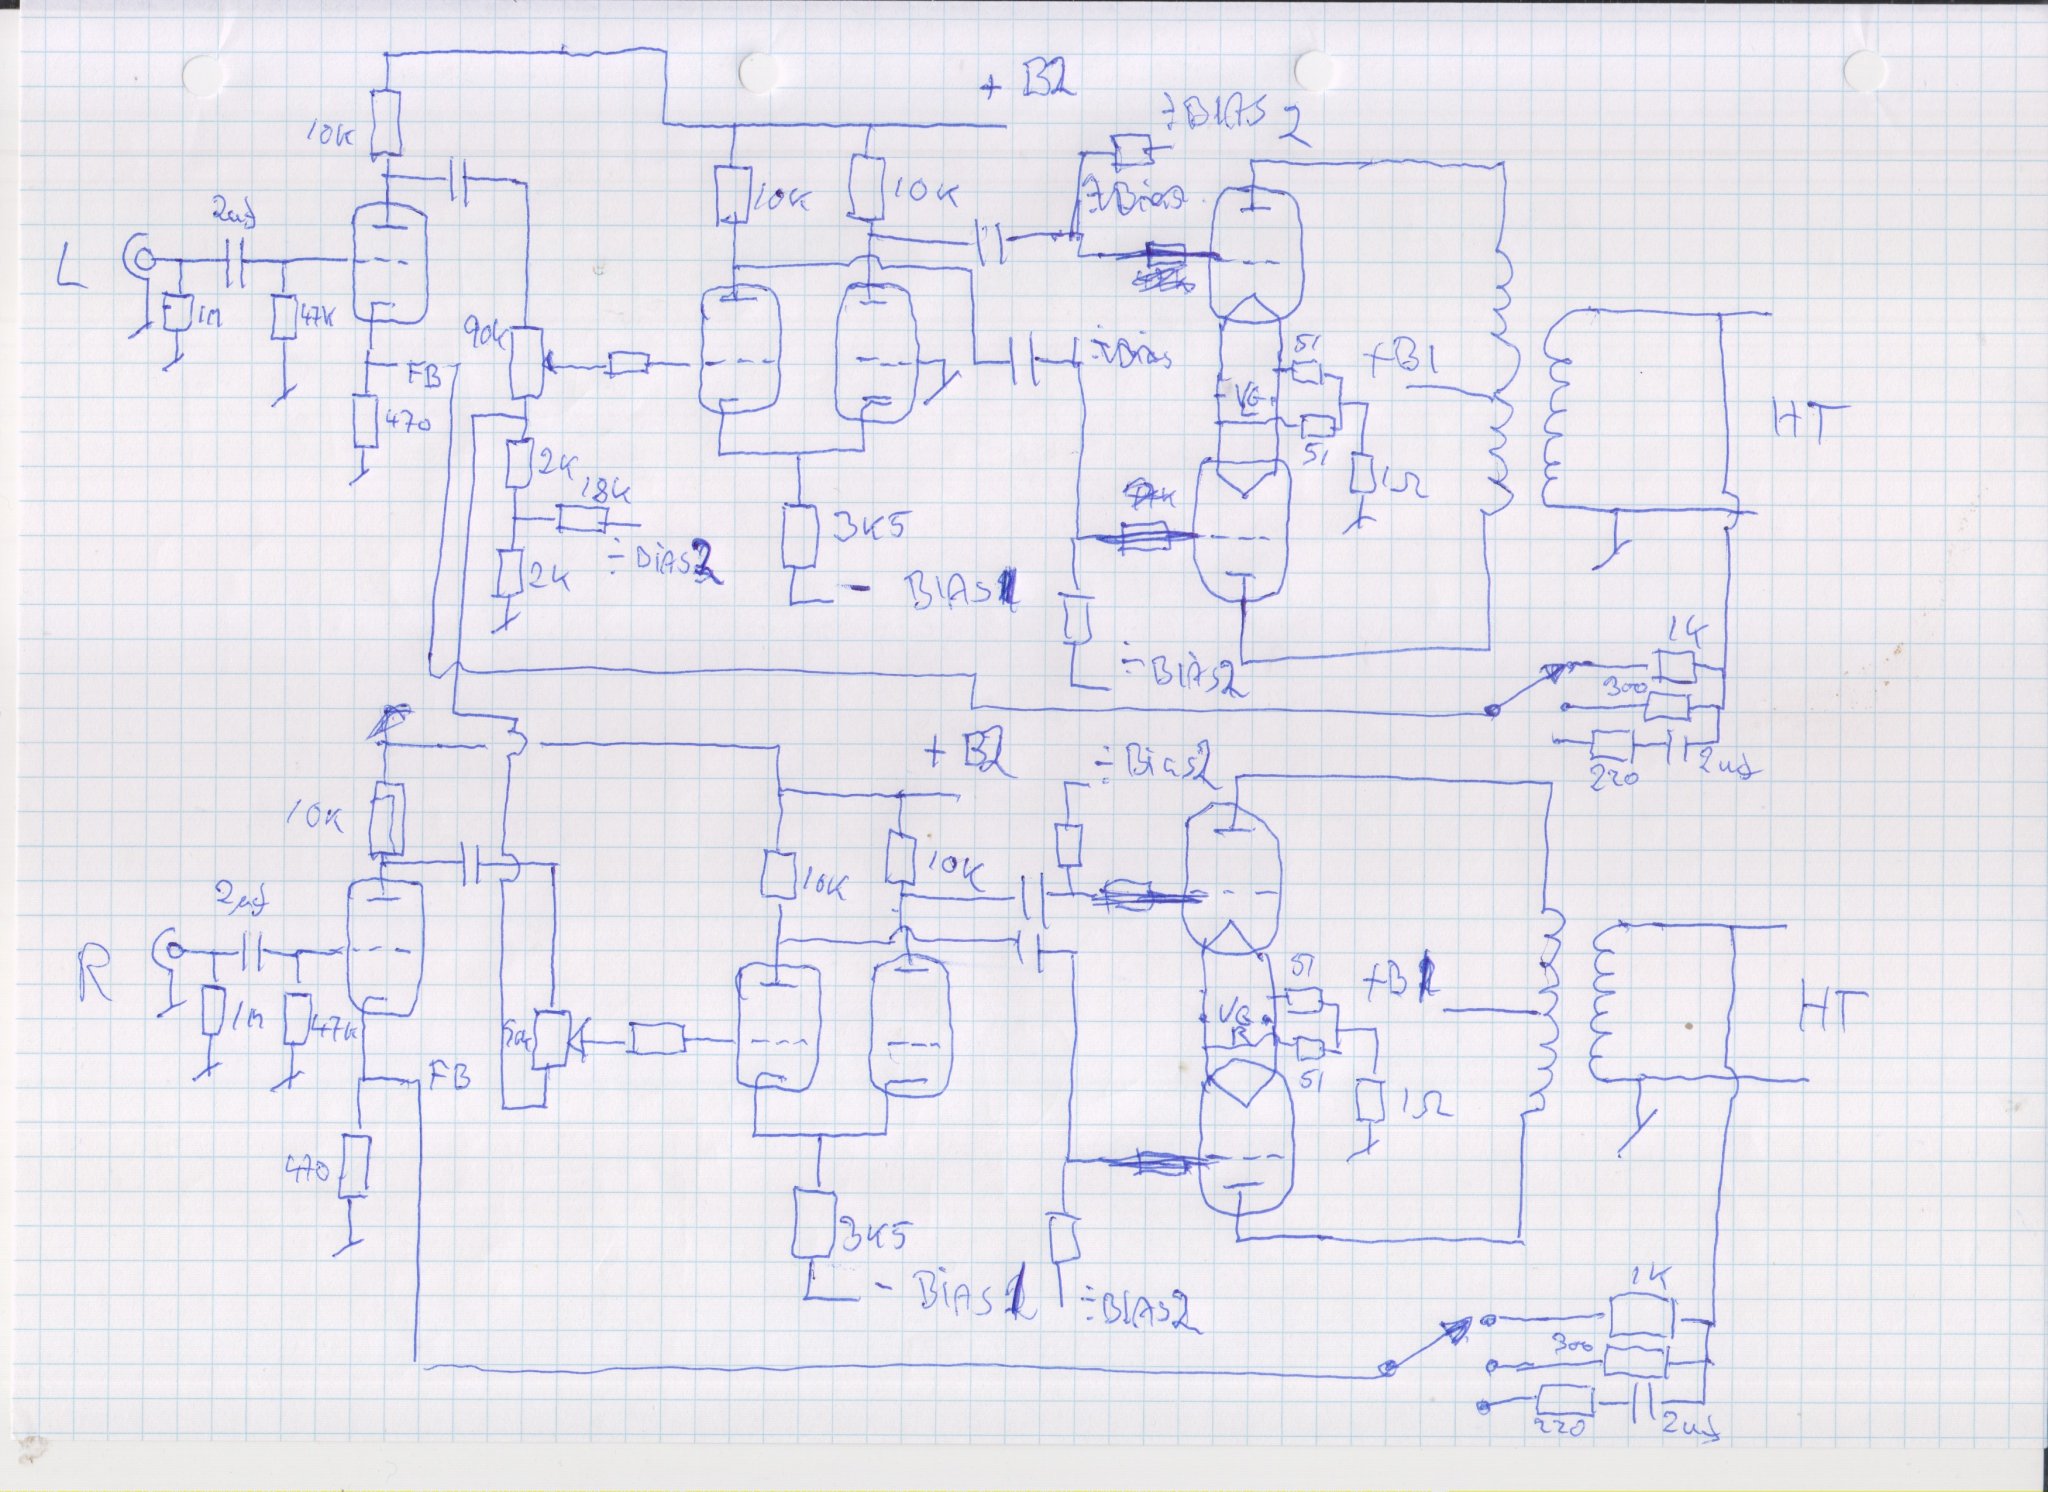 + B2
÷BIAS 2
10K
10K
10K
÷Bias
2uf
L
1M
47K
90K
÷Bias
51
+B1
FB
VG
L
HT
470
51
2K
18K
1Ω
3K5
÷BIAS2
2K
- BIAS1
1K
÷BIAS2
300
+ B2
÷Bias2
220
2uf
10K
10K
10K
2uf
R
51
+B1
VG
R
HT
1M
47K
50K
51
FB
1Ω
470
3K5
- BIAS1
÷BIAS2
1K
300
220
2uf